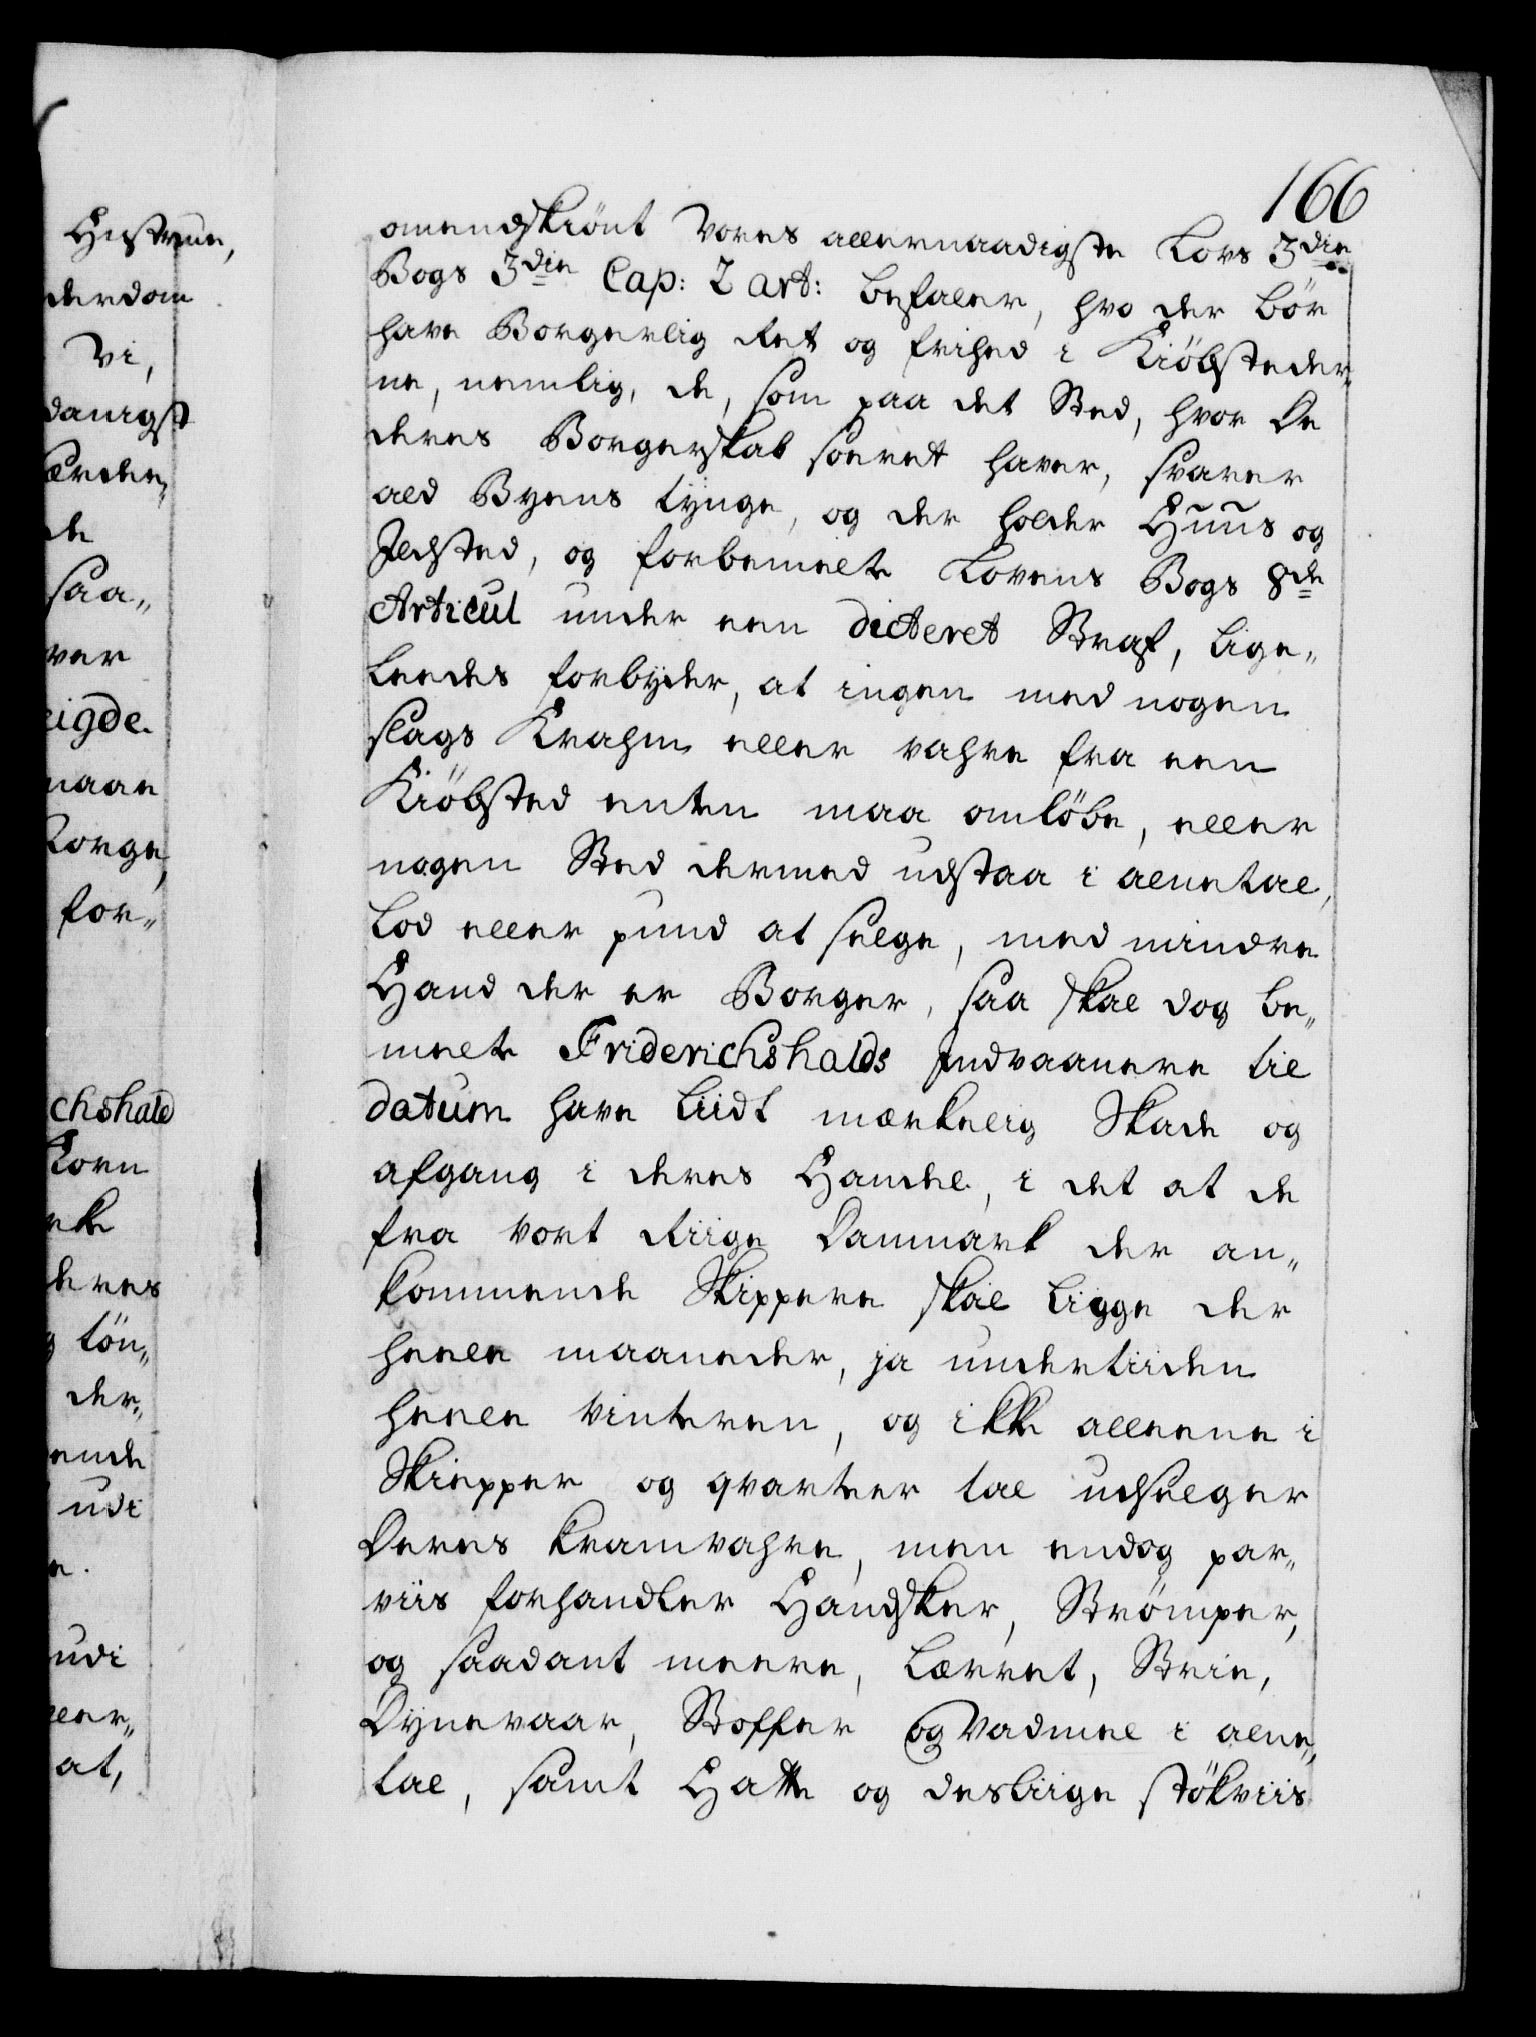 166
omendskiönt Vores allernaadigste Lovs 3die
Bogs 3die Cap: 2 art: befaler, hvo der bör
have Borgerlig Ret og frihed i Kiöbsteder„
ne, nemlig, de, som paa det Sted, hvor De
deres Borgerskab soeret haver, svarer
ald Byens tÿnge, og der holder Huus og
Ildsted, og forbemelte Lovens Bogs 8de
Articul under een dicteret Straf, lige„
leedes forbÿder, at ingen med nogen
slags Krahm eller vahre fra een
Kiöbsted enten maa omlöbe, eller
nogen Sted dermed udstaa i alnetal,
Lod eller pund at selge, med mindre
Hand der er Borger, saa skal dog be„
melte Friderichshalds Indvaanere til
datum have liidt mærkelig Skade og
afgang i deres Handel, i det at de
fra vort Riige Danmark der an„
kommende Skippere skal ligge der
heele maaneder, ja undertiiden
heele vinteren, og ikke alleene i
Skiepper og qvarteer tal udselger
Deres Kramvahre, men endog par„
viis forhandler Handsker, Strömper,
og saadant meere, Lærret, Strie,
Dÿnevaar, Stoffer og Vadmel i alne„
tal, samt Hatte og desliige stökviis
Hustrue,
derdom
Vi,
danigst
de
saa„
ver
eigde
maae
Korge,
for„
chshald
Korn
deres
tön„
der„
ende
udi
udi
at,